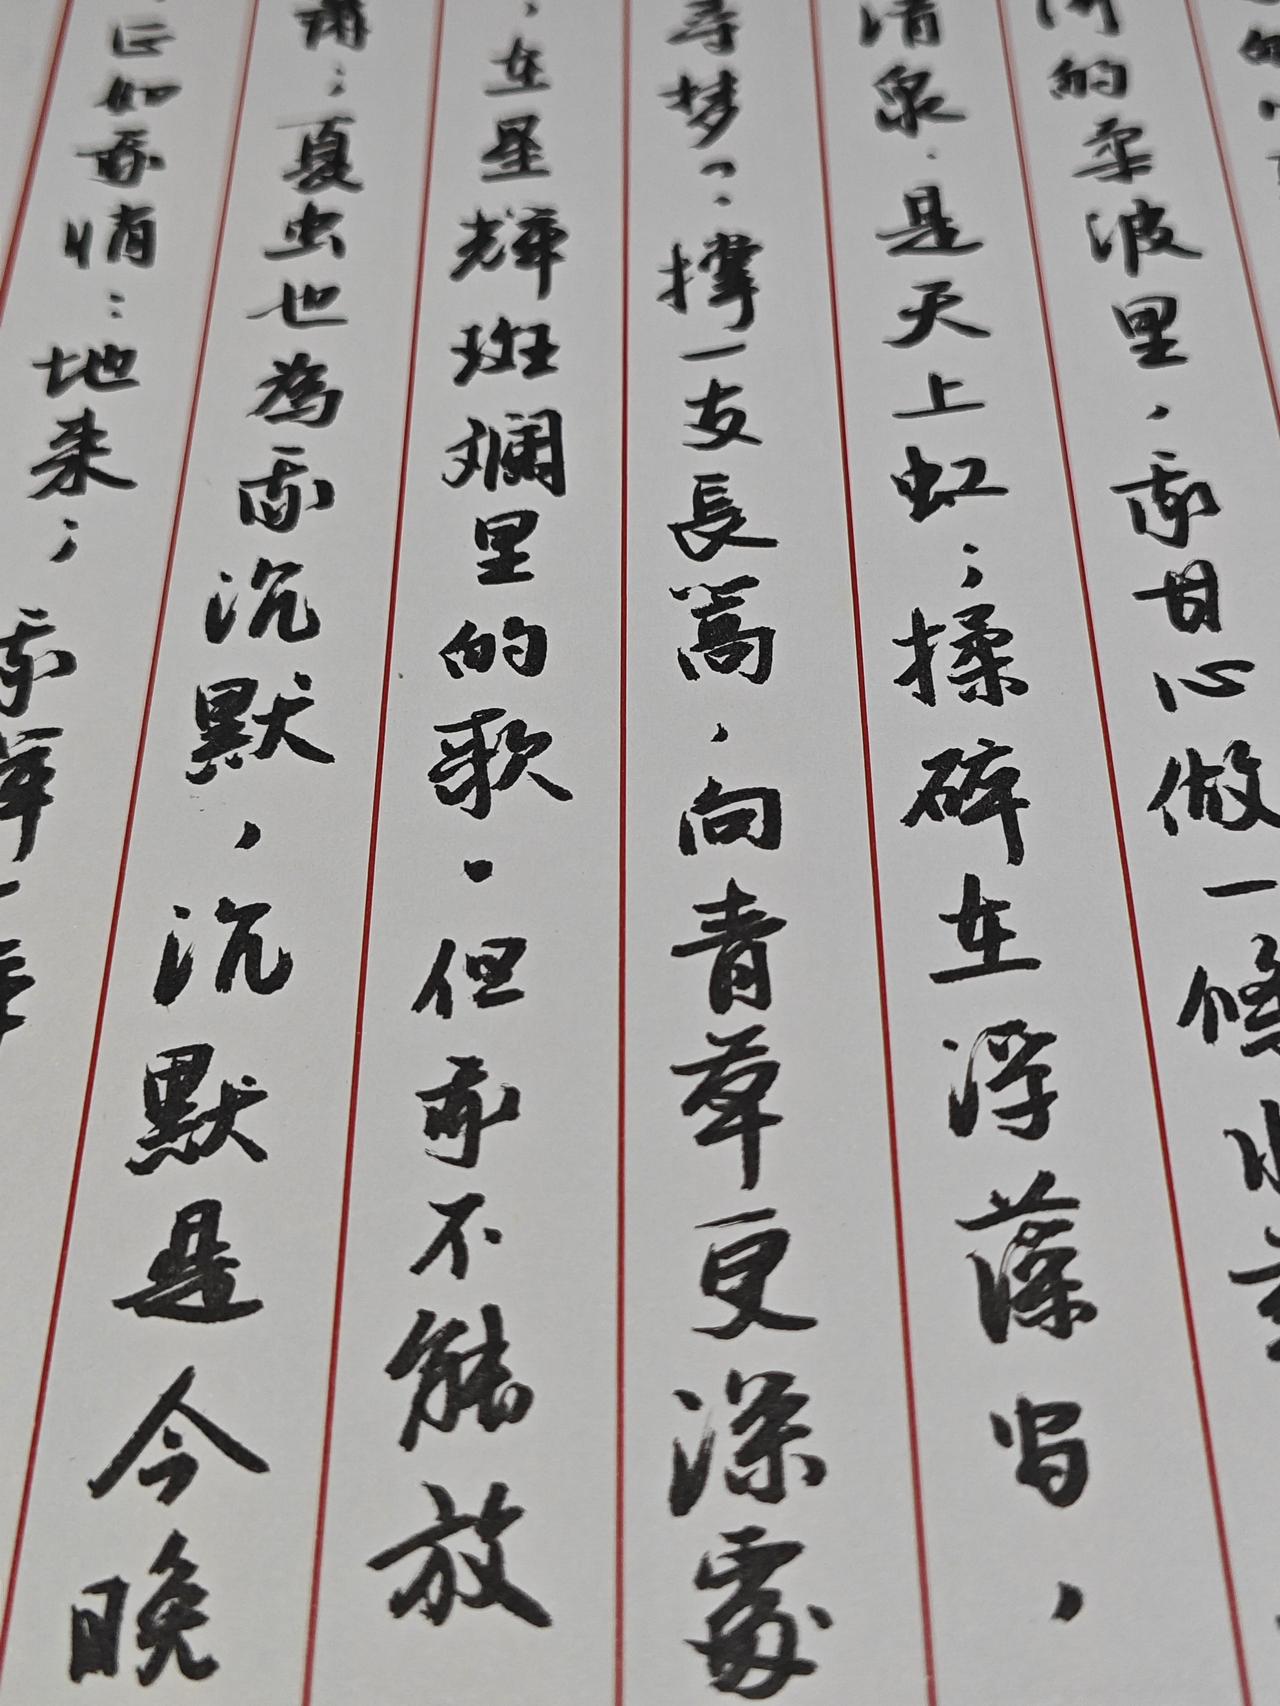 的柔波里，我甘心做一條
清泉，是天上虹；揉碎在浮藻间，
寻梦？撑一支長篙，向青草更深處
，在星輝斑斓里的歌。但我不能放
；夏虫也為我沉默，沉默是今晚
正如我悄悄地来；我